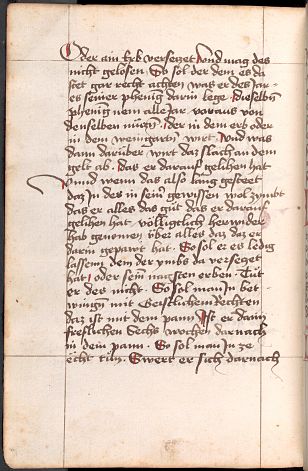 Oder ain erb versetzet vnd mag des
nicht gelosen So sol der dem es da
stet gar recht achten was er des Jar
es seiner phenig darin lege dieselbn
phenig nem alle Jar voraus von
denselben oder in dem erb oder
in dem weingarten wirt vnd was
dann daruber wirt daz slach an dem
gelt ab das er darauf gelihen hat
vnnd wenn das also lanng gesteet
daz In des in sein gewissen wol zymbt
das er alles das gut des er darauf
gelihen hat volligklich herwider
hab genomen vber alles daz daz er
darin gepawt hat So sol er es ledig
lassenn dem der ynbs da versetzet
hat oder sein nagsten erben Tut
er des nicht So sol man In bet
wingen mit Geistlichem Rechten
daz ist mit dem pann Ist er darin
freflichen Sechs wochen darnach
in dem pann So sol man In ze
echt tun Swert er sich darnach